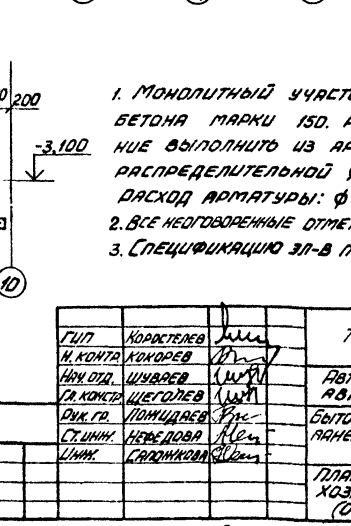 200
-3,100
10
1. Монолитный участ
бетона марки 150. А
ние выполнить из ар
распределительной
расход арматуры: ф
2. Все неоговоренные отме
3. Спецификацию эл-в п
ГИП Коростелев
Н. контр Кокорев
Нач. отд. Шуваев
Гл. констр Щеголев
Рук. гр. Пожидаев
Ст. инж. Нефедова
Инж. Сапожкова
Авт
ава
Быто
пане
Плa
хоз
(о